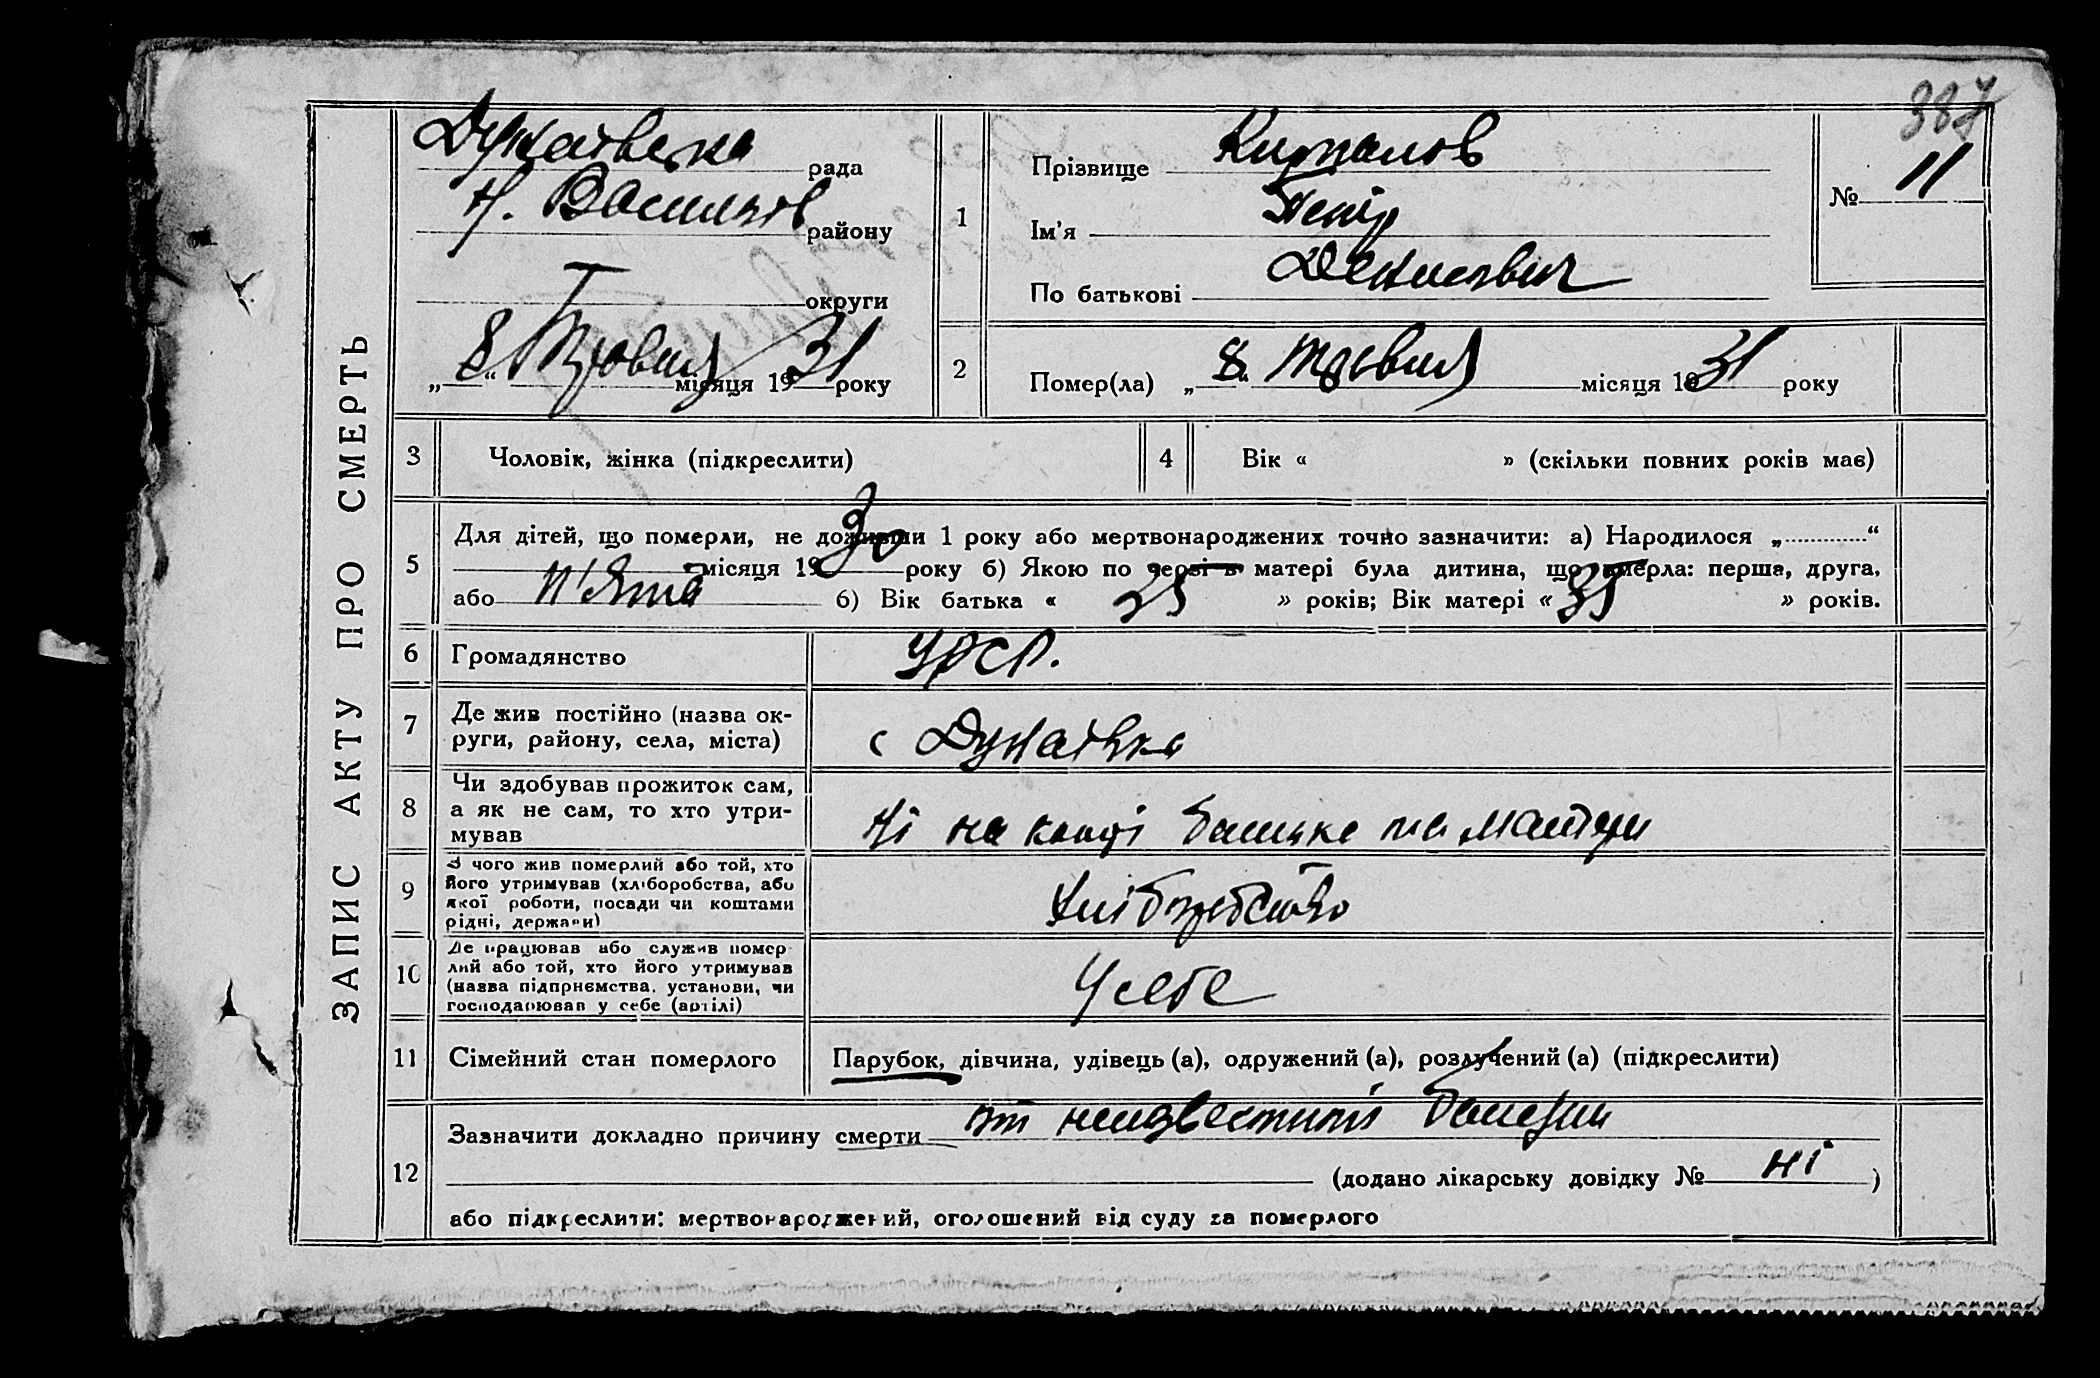 387
ЗАПИС АКТУ ПРО СМЕРТЬ
Дунаївська рада
Н. Васильов району
округи
„ 8 “ Травня місяця 1931 року
1
Прізвище
Ім'я Петір
По батькові Денисович
№ 11
2
Помер(ла) „ 8 “ Травня місяця 1931 року
3
Чоловік, жінка (підкреслити)
4
Вік « » (скільки повних років має)
5
Для дітей, що померли, не доживши 1 року або мертвонароджених точно зазначити: а) Народилося „ “
місяця 1930 року б) Якою по черзі в матері була дитина, що вмерла: перша, друга,
або п'ята б) Вік батька « 25 » років; Вік матері « 35 » років.
6
Громадянство
УРСР.
7
Де жив постійно (назва ок-
руги, району, села, міста)
с Дунаївка
8
Чи здобував прожиток сам,
а як не сам, то хто утри-
мував
Ні на кошті батька та матери
9
З чого жив померлий або той, хто
його утримував (хліборобства, або
якої роботи, посади чи коштами
рідні, держави)
Хліборобство
10
Де працював або служив помер-
лий або той, хто його утримував
(назва підприємства, установи, чи
господарював у себе (артілі)
У себе
11
Сімейний стан померлого
Парубок, дівчина, удівець (а), одружений (а), розлучений (а) (підкреслити)
12
Зазначити докладно причину смерти от неизвестной болезни
(додано лікарську довідку № ні )
або підкреслити: мертвонароджений, оголошений від суду за померлого